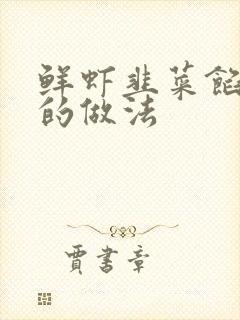 鲜虾韭菜馅
的做法
贾書章